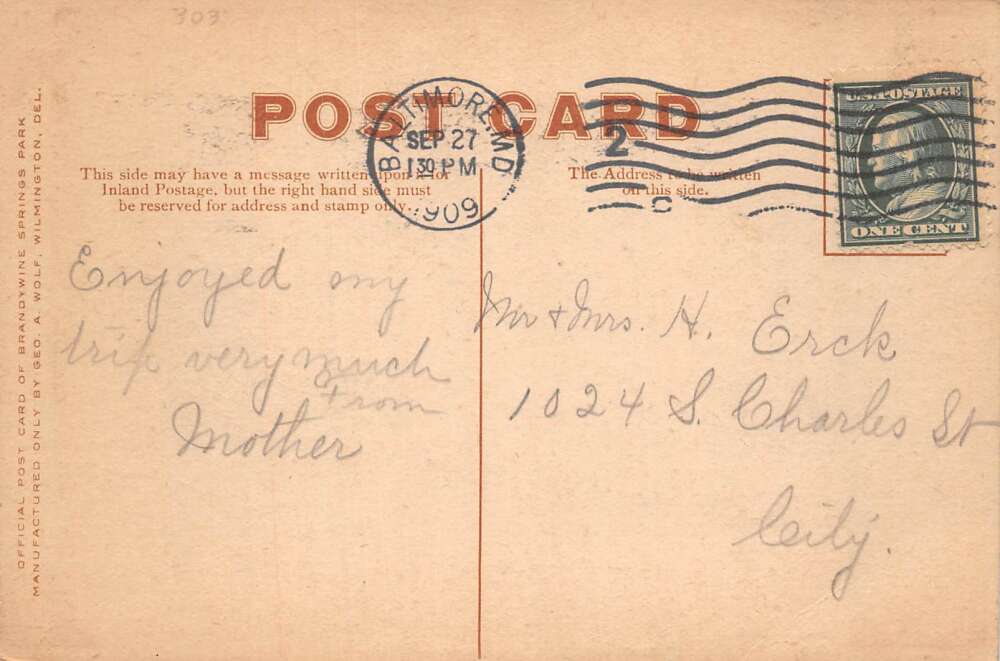 303
POST CARD
BALTIMORE, MD.
SEP 27
1 30 PM
1909
2
C
U.S. POSTAGE
ONE CENT
This side may have a message written upon it for
Inland Postage, but the right hand side must
be reserved for address and stamp only.
The Address to be written
on this side.
OFFICIAL POST CARD OF BRANDYWINE SPRINGS PARK
MANUFACTURED ONLY BY GEO. A. WOLF, WILMINGTON, DEL.
Enjoyed my
trip very much
From
Mother
Mr + Mrs. H. Erck
1024 S. Charles St
City.